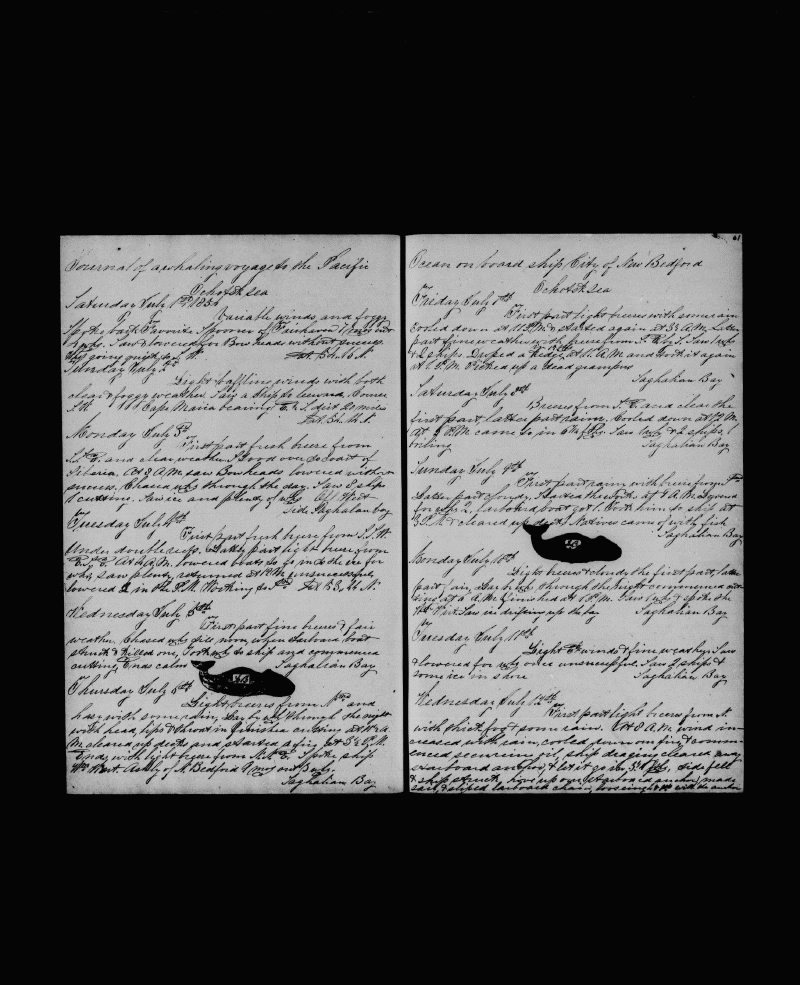 Journal of a whaling voyage to the Pacific
Ochotsk sea
Saturday July 1st 1854
Variable winds and foggy
Spoke bark Favorite Spooner of Fairhaven
Saw & lowered for Bowheads without success
Lat. 54. 16 N
Sunday July 2d
Light baffling winds with both
clear & foggy weather. Saw a ship to leeward. Course
S.W. Cape Maria bearing E. by S. dist 20 miles
Monday July 3d
First part fresh breeze from
and clear weather. Stood over to coast of
Siberia. At 8 A.M. saw Bowheads lowered without
success. Chased whs through the day. Saw 8 ships
1 cutting. Saw ice and plenty of whs Off West
side Saghalian bay
Tuesday July 4th
First part fresh breeze from S.S.W.
Under double reefs. Latter part light breeze from
A.M. lowered boats to go in to the ice for
whs, saw plenty, returned at 12 M. unsuccessful
lowered 2 in the P.M. Working to Lat 53, 44 N.
Wednesday July 5th
First part fine breeze & fair
weather. Chased whs till noon, when larboard boat
struck & killed one, Took wh to ship and commenced
cutting, Ends calm Saghalian Bay
Thursday July 6th
Light breezes from and
hazy with some rain, through the night
with head, lips & throat in finished cutting at
M. cleared up decks and started a fire at P.M.
Ends with light breeze from Spoke ship
Wm Wirt of N. Bedford
Saghalian Bay
61
Ocean on board ship City of New Bedford
Ochotsk sea
Friday July 7th
First part light breezes with some rain
cooled down at P.M. & started again at A.M. Latter
part fine weather with breeze from Saw whs
& ships. Droped a kedge at A.M. and took it again
at P.M. Picked up a dead grampus
Saghalian Bay
Saturday July 8th
Breezes from and clear the
first part, latter part rainy, Cooled down at M.
at P.M. came to in Saw whs & 2 ships, 1
boiling Saghalian Bay
Sunday July 9th
First part rain with breeze from
Latter part cloudy. Started the works at A.M. lowered
for whs larboard boat got 1. Took him to ship at
3 P.M. & cleared up decks. Natives came of with fish
Saghalian Bay
Monday July 10th
Light breezes & cloudy the first part, latter
part fair, through the night commenced cut-
ting at A.M. finished at P.M. Saw whs & spoke the
Wm Wirt. Saw ice drifting up the bay Saghalian Bay
Tuesday July 11th
Light winds & fine weather. Saw
& lowered for whs once unsuccessful. Saw 2 ships &
some ice in shore Saghalian Bay
Wednesday July 12th
First part light breezes from N.
with thick fog & some rain. At 8 A.M. wind in-
creased with rain, cooled down our fire & comm-
enced securing oil, ship draging cleared away
starboard anchor, & let it go in fms, tide fell
& ship struck, hove up our starboard anchor, made
sail, & sliped larboard chain, with the anchor